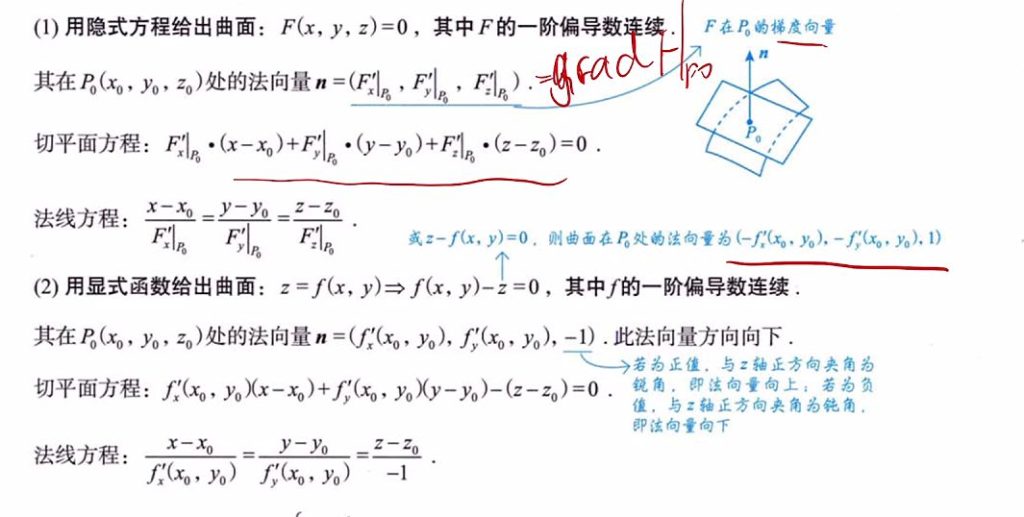 (1) 用隐式方程给出曲面：F(x, y, z)=0，其中F的一阶偏导数连续．
F在P₀的梯度向量
其在P₀(x₀, y₀, z₀)处的法向量n=(F′ₓ|P₀, F′ᵧ|P₀, F′_z|P₀)．
=grad F|P₀
n
P₀
切平面方程：F′ₓ|P₀·(x−x₀)+F′ᵧ|P₀·(y−y₀)+F′_z|P₀·(z−z₀)=0．
法线方程：(x−x₀)/(F′ₓ|P₀)=(y−y₀)/(F′ᵧ|P₀)=(z−z₀)/(F′_z|P₀)．
或z−f(x, y)=0，则曲面在P₀处的法向量为(−f′ₓ(x₀, y₀), −f′ᵧ(x₀, y₀), 1)
(2) 用显式函数给出曲面：z=f(x, y)⇒f(x, y)−z=0，其中f的一阶偏导数连续．
其在P₀(x₀, y₀, z₀)处的法向量n=(f′ₓ(x₀, y₀), f′ᵧ(x₀, y₀), −1)．此法向量方向向下．
若为正值，与z轴正方向夹角为
锐角，即法向量向上；若为负
值，与z轴正方向夹角为钝角，
即法向量向下
切平面方程：f′ₓ(x₀, y₀)(x−x₀)+f′ᵧ(x₀, y₀)(y−y₀)−(z−z₀)=0．
法线方程：(x−x₀)/(f′ₓ(x₀, y₀))=(y−y₀)/(f′ᵧ(x₀, y₀))=(z−z₀)/(−1)．